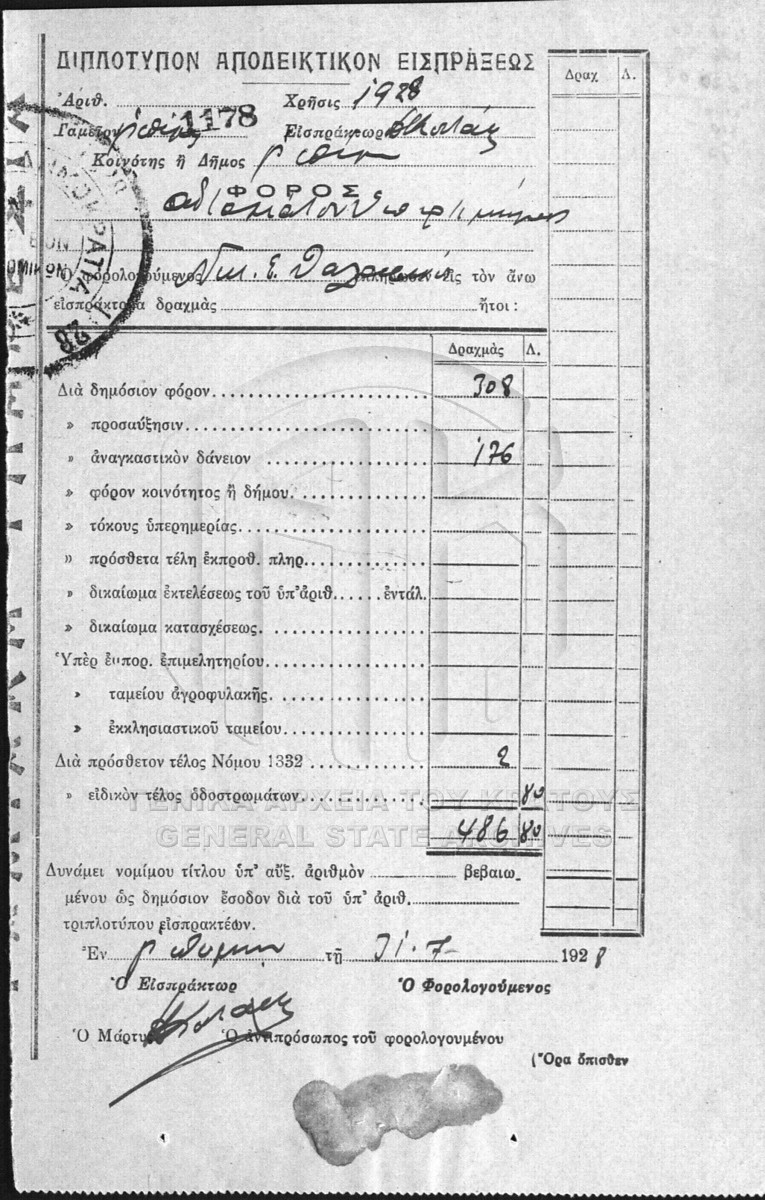 ΔΙΠΛΟΤΥΠΟΝ ΑΠΟΔΕΙΚΤΙΚΟΝ ΕΙΣΠΡΑΞΕΩΣ
Δραχ Λ.
Ἀριθ. 1178 Χρῆσις 1928
Ταμεῖον Εἰσπράκτωρ
Κοινότης ἢ Δῆμος
ΦΟΡΟΣ
Ὁ φορολογούμενος Νικ. Ε. ἐπλήρωσεν εἰς τὸν ἄνω
εἰσπράκτορα δραχμὰς ἤτοι:
Δραχμὰς Λ.
Διὰ δημόσιον φόρον 308
» προσαύξησιν
» ἀναγκαστικὸν δάνειον 176
» φόρον κοινότητος ἢ δήμου.
» τόκους ὑπερημερίας.
» πρόσθετα τέλη ἐκπροθ. πληρ.
» δικαίωμα ἐκτελέσεως τοῦ ὑπ' ἀριθ...... ἐντάλ.
» δικαίωμα κατασχέσεως.
Ὑπὲρ ἐμπορ. ἐπιμελητηρίου
» ταμείου ἀγροφυλακῆς
» ἐκκλησιαστικοῦ ταμείου
Διὰ πρόσθετον τέλος Νόμου 1332 2
» εἰδικὸν τέλος ὁδοστρωμάτων 80
486 80
ΓΕΝΙΚΑ ΑΡΧΕΙΑ ΤΟΥ ΚΡΑΤΟΥΣ
GENERAL STATE ARCHIVES
Δυνάμει νομίμου τίτλου ὑπ' αὔξ. ἀριθμὸν βεβαιω-
μένου ὡς δημόσιον ἔσοδον διὰ τοῦ ὑπ' ἀριθ.
τριπλοτύπου εἰσπρακτέων.
Ἐν τῇ 31-7- 1928
Ὁ Εἰσπράκτωρ Ὁ Φορολογούμενος
Ὁ Μάρτυς Ὁ ἀντιπρόσωπος τοῦ φορολογουμένου
(Ὅρα ὄπισθεν